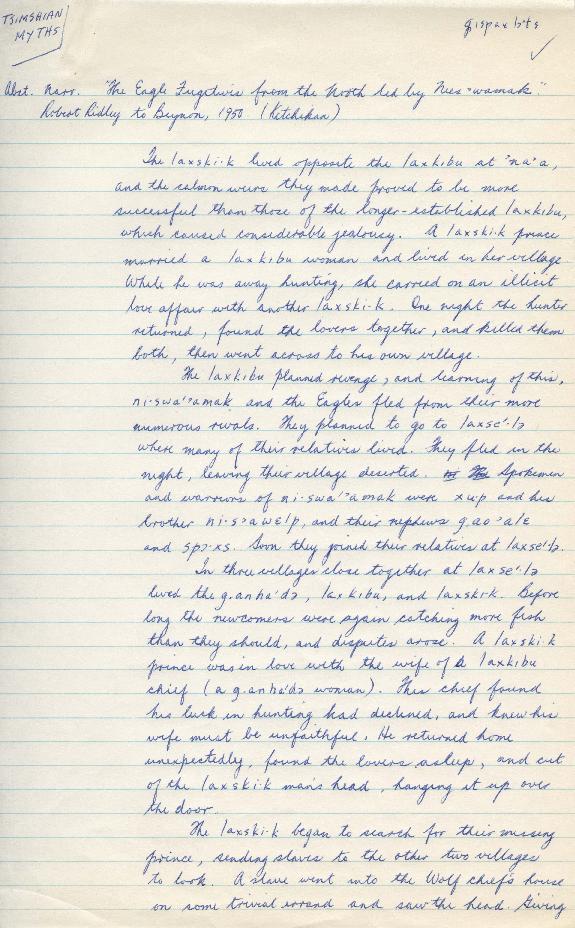 TSIMSHIAN
MYTHS
gispaxlɔts
Abst. Narr. "The Eagle Fugitives from the North led by Nees-wamak".
Robert Ridley to Beynon, 1950 (Ketchikan)
The laxski·k lived opposite the laxkibu at 'na'a,
and the salmon weirs they made proved to be more
successful than those of the longer-established laxkibu,
which caused considerable jealousy. A laxski·k prince
married a laxkibu woman and lived in her village
While he was away hunting, she carried on an illicit
love affair with another laxski·k. One night the hunter
returned, found the lovers together, and killed them
both, then went across to his own village.
The laxkibu planned revenge, and learning of this,
ni·swa'ɔamak and the Eagles fled from their more
numerous rivals. They planned to go to laxse'·lɔ
where many of their relatives lived. They fled in the
night, leaving their village deserted. Spokesmen
and warriors of ni·swa'ɔamak were xup and his
brother ni·sɔawɛlp, and their nephews g.aoɔalɛ
and spɔ·xs. Soon they joined their relatives at laxse'·lɔ.
In three villages close together at laxse'·lɔ
lived the g.anha'dɔ, laxkibu, and laxski·k. Before
long the newcomers were again catching more fish
than they should, and disputes arose. A laxski·k
prince was in love with the wife of a laxkibu
chief (a g.anha'dɔ woman). This chief found
his luck in hunting had declined, and knew his
wife must be unfaithful. He returned home
unexpectedly, found the lovers asleep, and cut
off the laxski·k man's head, hanging it up over
the door.
The laxski·k began to search for their missing
prince, sending slaves to the other two villages
to look. A slave went into the Wolf chief's house
on some trivial errand and saw the head. Giving